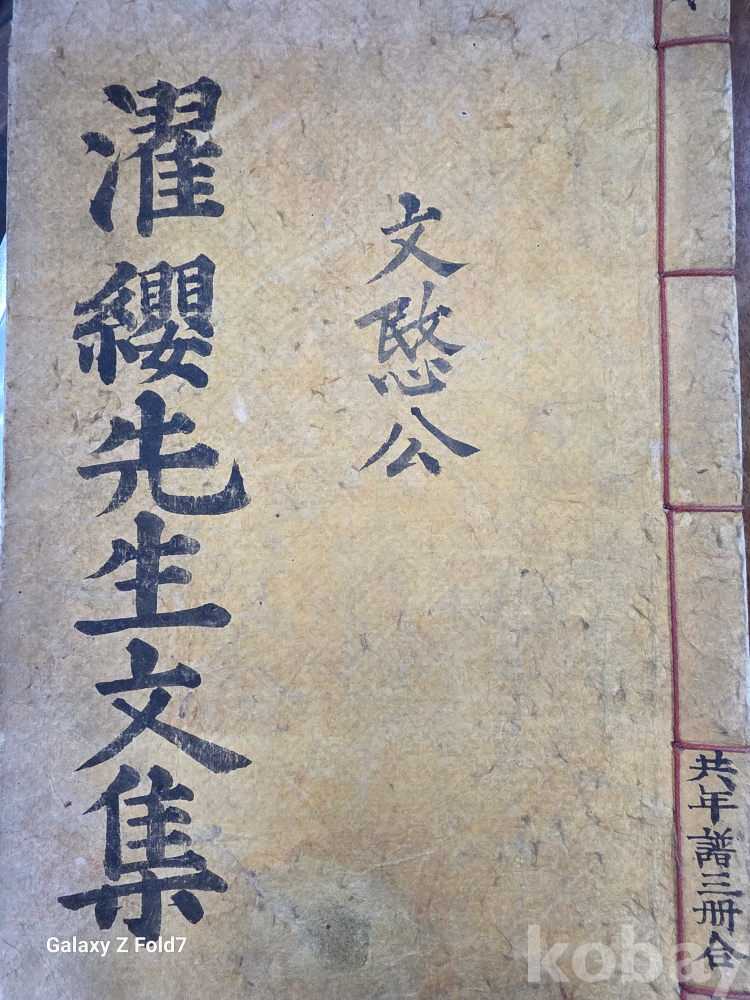 共年譜三冊合
文愍公
濯纓先生文集
Galaxy Z Fold7
kobay